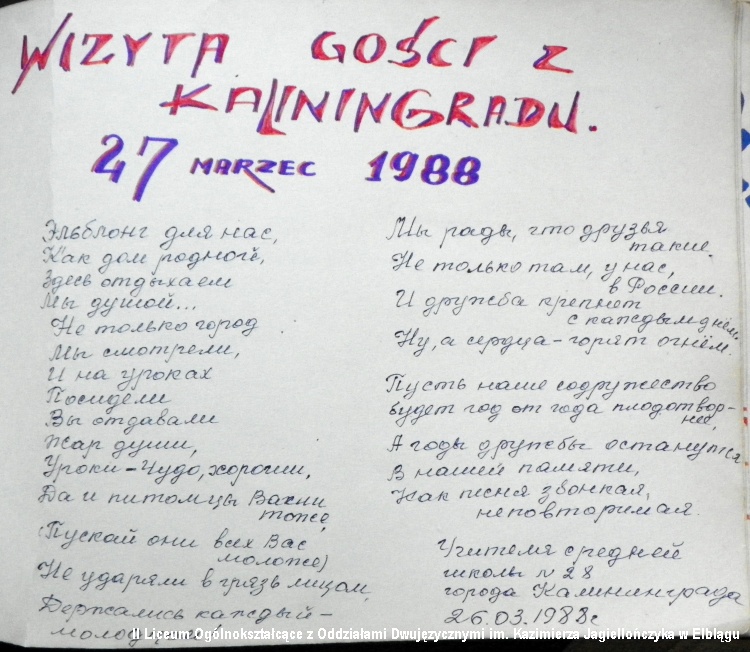 WIZYTA GOŚCI Z
KALININGRADU.
27 MARZEC 1988
Эльблонг для нас,
Как дом родной,
Здесь отдыхаем
Мы душой...
Не только город
Мы смотрели,
И на уроках
Посидели
Вы отдавали
Жар души,
Уроки - Чудо, хороши,
Да и питомцы Ваши
тоже,
(Пускай они всех Вас
моложе)
Не ударяли в грязь лицом,
Держались каждый -
Мы рады, что друзья
такие.
Не только там, у нас,
в России.
И дружба крепнет
с каждым днём,
Ну, а сердца - горят огнём.
Пусть наше содружество
будет год от года плодотвор-
ней,
А годы дружбы останутся
В нашей памяти,
Как песня звонкая,
неповторимая.
Учителя средней
школы № 28
города Калининграда
26.03.1988г
II Liceum Ogólnokształcące z Oddziałami Dwujęzycznymi im. Kazimierza Jagiellończyka w Elblągu